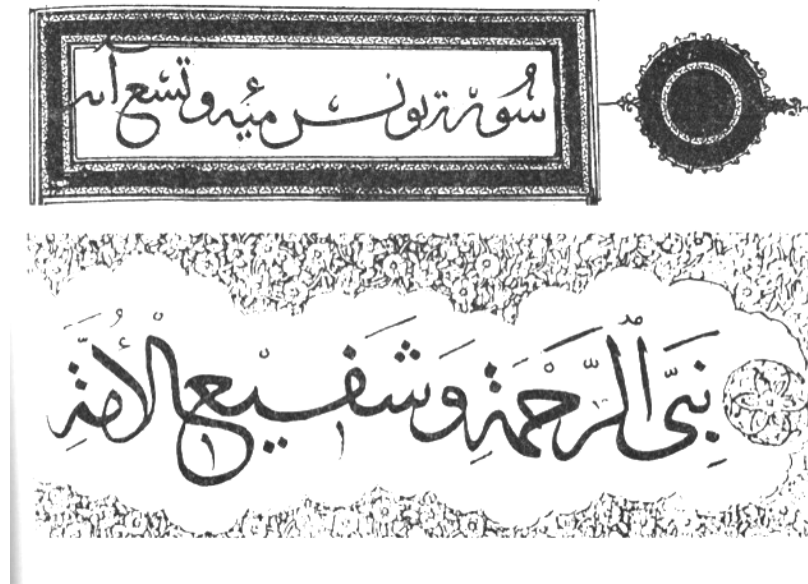 سُورة يونس مئيه وتسع آيه
نَبِيِّ الرَّحْمَةِ وَشَفِيعِ الْأُمَّةِ